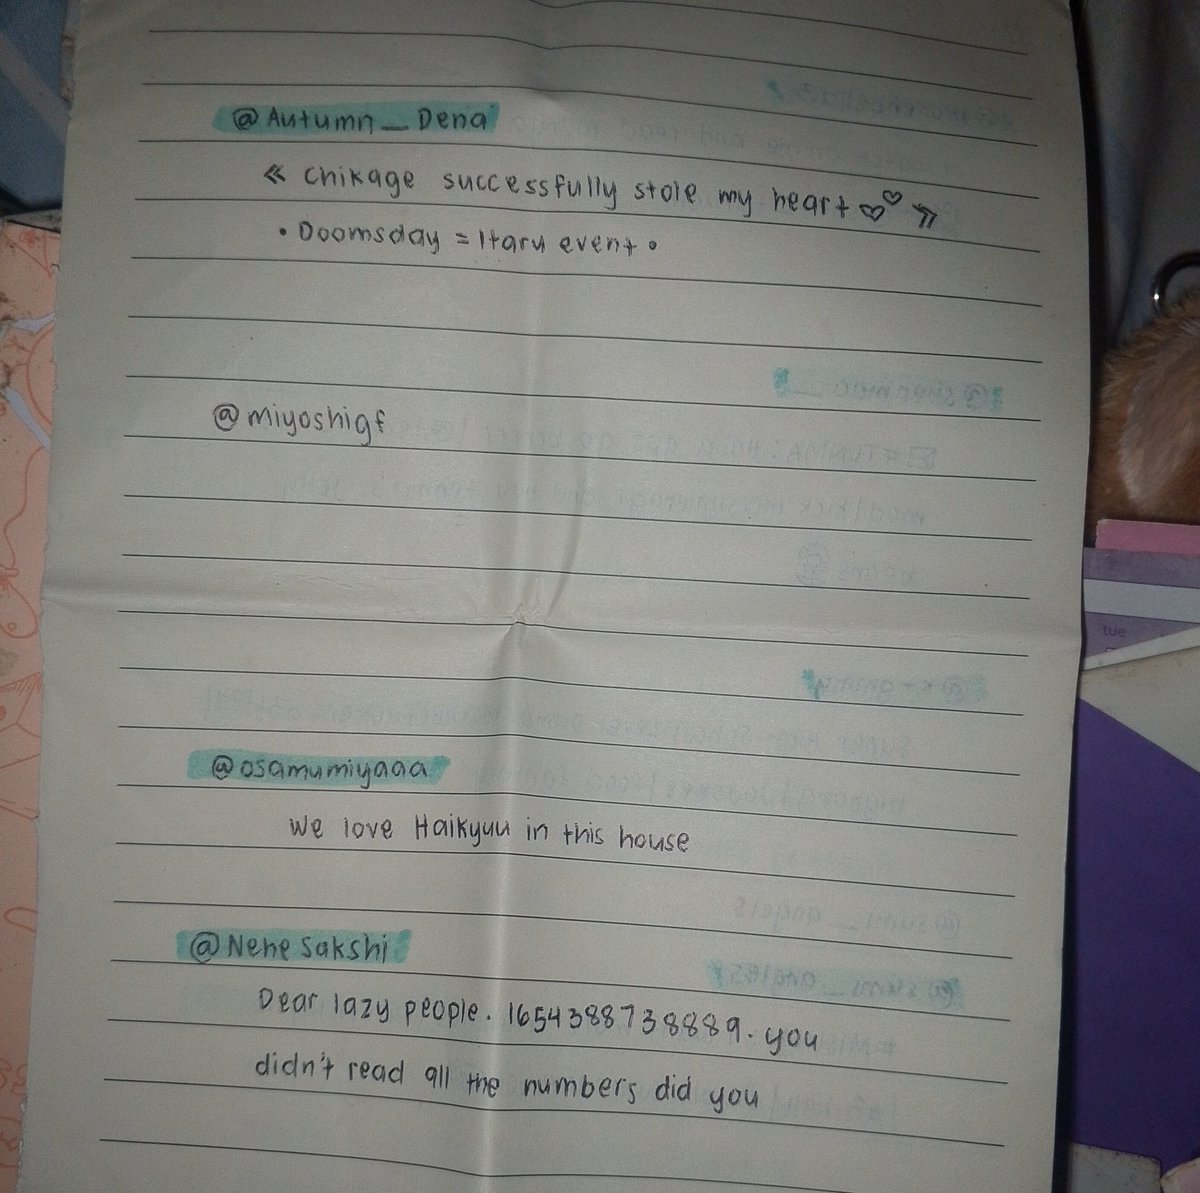 @Autumn_Dena
« chikage successfully stole my heart ♡♡ »
• Doomsday = Itaru event •
@miyoshigf
@osamumiyaaa
We love Haikyuu in this house
@Nene sakshi
Dear lazy people. 1654388738889. you
didn't read all the numbers did you
tue